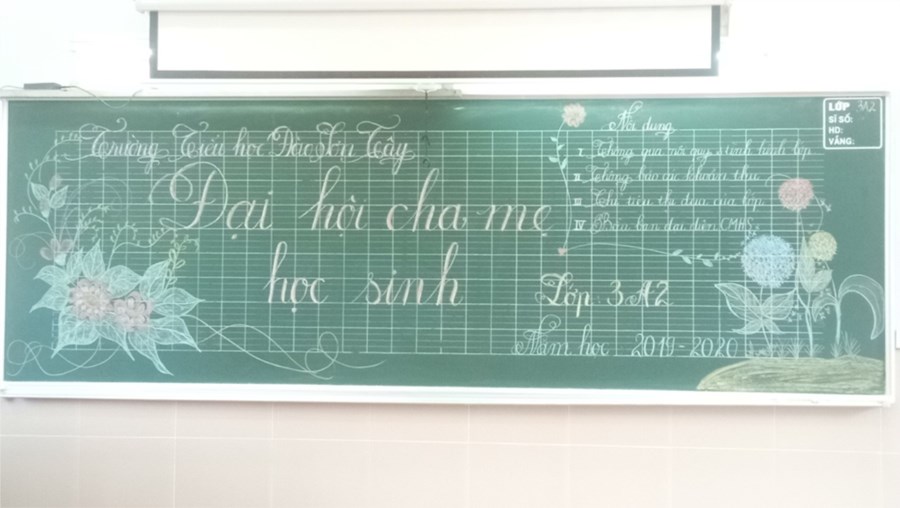 Trường Tiểu học Đào Sơn Tây
Đại hội cha mẹ
học sinh
Lớp: 3A2
Năm học 2019-2020
Nội dung
I. Thông qua nội quy, tình hình lớp
II. Thông báo các khoản thu
III. Chỉ tiêu thi đua của lớp
IV. Bầu ban đại diện CMHS
LỚP 3A2
SĨ SỐ:
HD:
VẮNG: